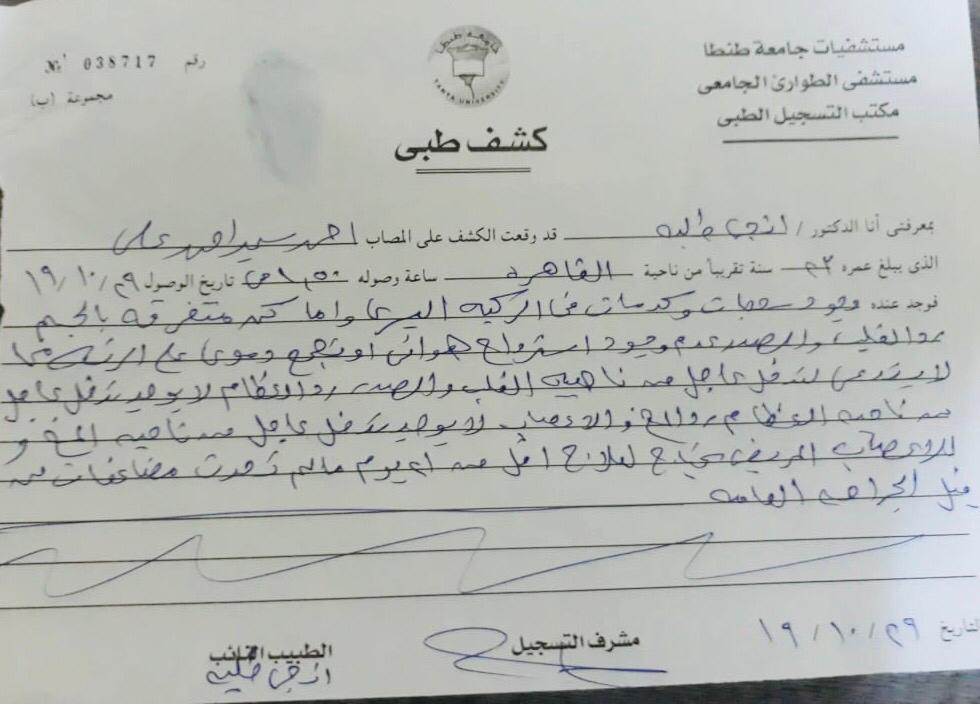 مستشفيات جامعة طنطا
مستشفى الطوارئ الجامعى
مكتب التسجيل الطبى
جامعة طنطا
TANTA UNIVERSITY
رقم 038717 №
مجموعة (ب)
كشف طبى
بمعرفتى أنا الدكتور / انجى طلبه قد وقعت الكشف على المصاب احمد سيد احمد على
الذى يبلغ عمره سنة تقريباً من ناحية القاهرة ساعة وصوله تاريخ الوصول ١٩/١٠/٢٩
فوجد عنده وجود سحجات وكدمات فى الركبه اليسرى واماكن متفرقه بالجسم
رد القلب والصدر عدم وجود استرواح هوائى او تجمع دموى على الرئه مما
لا يستدعى تدخل عاجل من ناحيه القلب والصدر رد العظام لا يوجد تدخل عاجل
من ناحيه العظام رد المخ والاعصاب لا يوجد تدخل عاجل من ناحيه المخ و
الاعصاب المريض يحتاج لعلاج اقل من ٢١ يوم مالم تحدث مضاعفات من
قبل الجراحه العامه
التاريخ ١٩/١٠/٢٩
مشرف التسجيل
الطبيب النائب
انجى طلبه